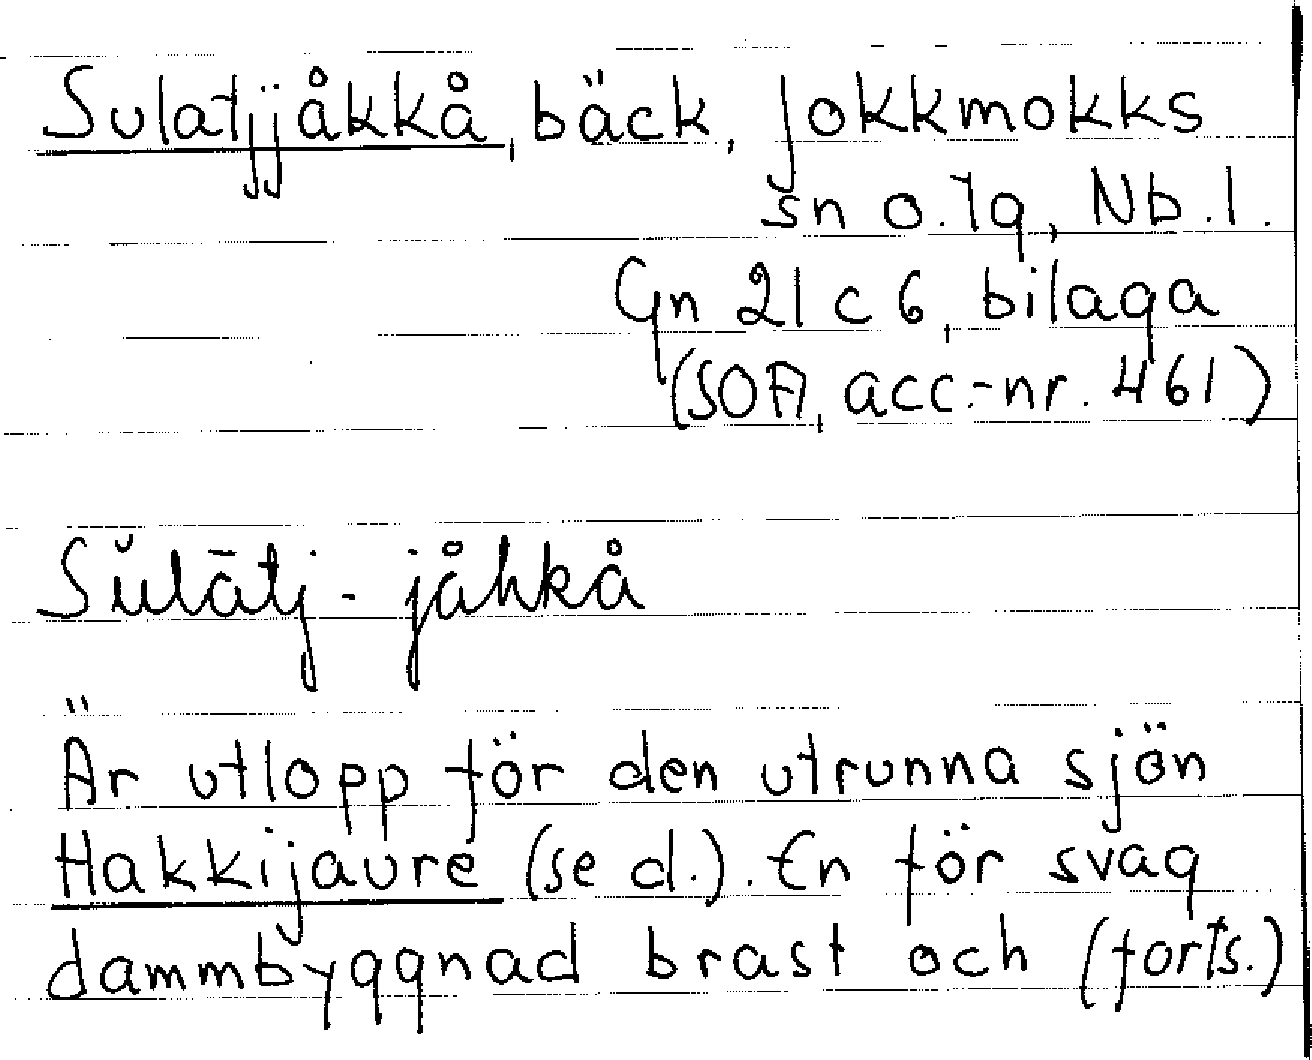 Sulatjjåkkå, bäck, Jokkmokks
sn o. lg, Nb. l.
Gn 21 c 6, bilaga
(SOFI, acc.-nr. 461)
Sŭlātj-jåhkå
Är utlopp för den utrunna sjön
Hakkijaure (se d.). En för svag
dammbyggnad brast och (forts.)